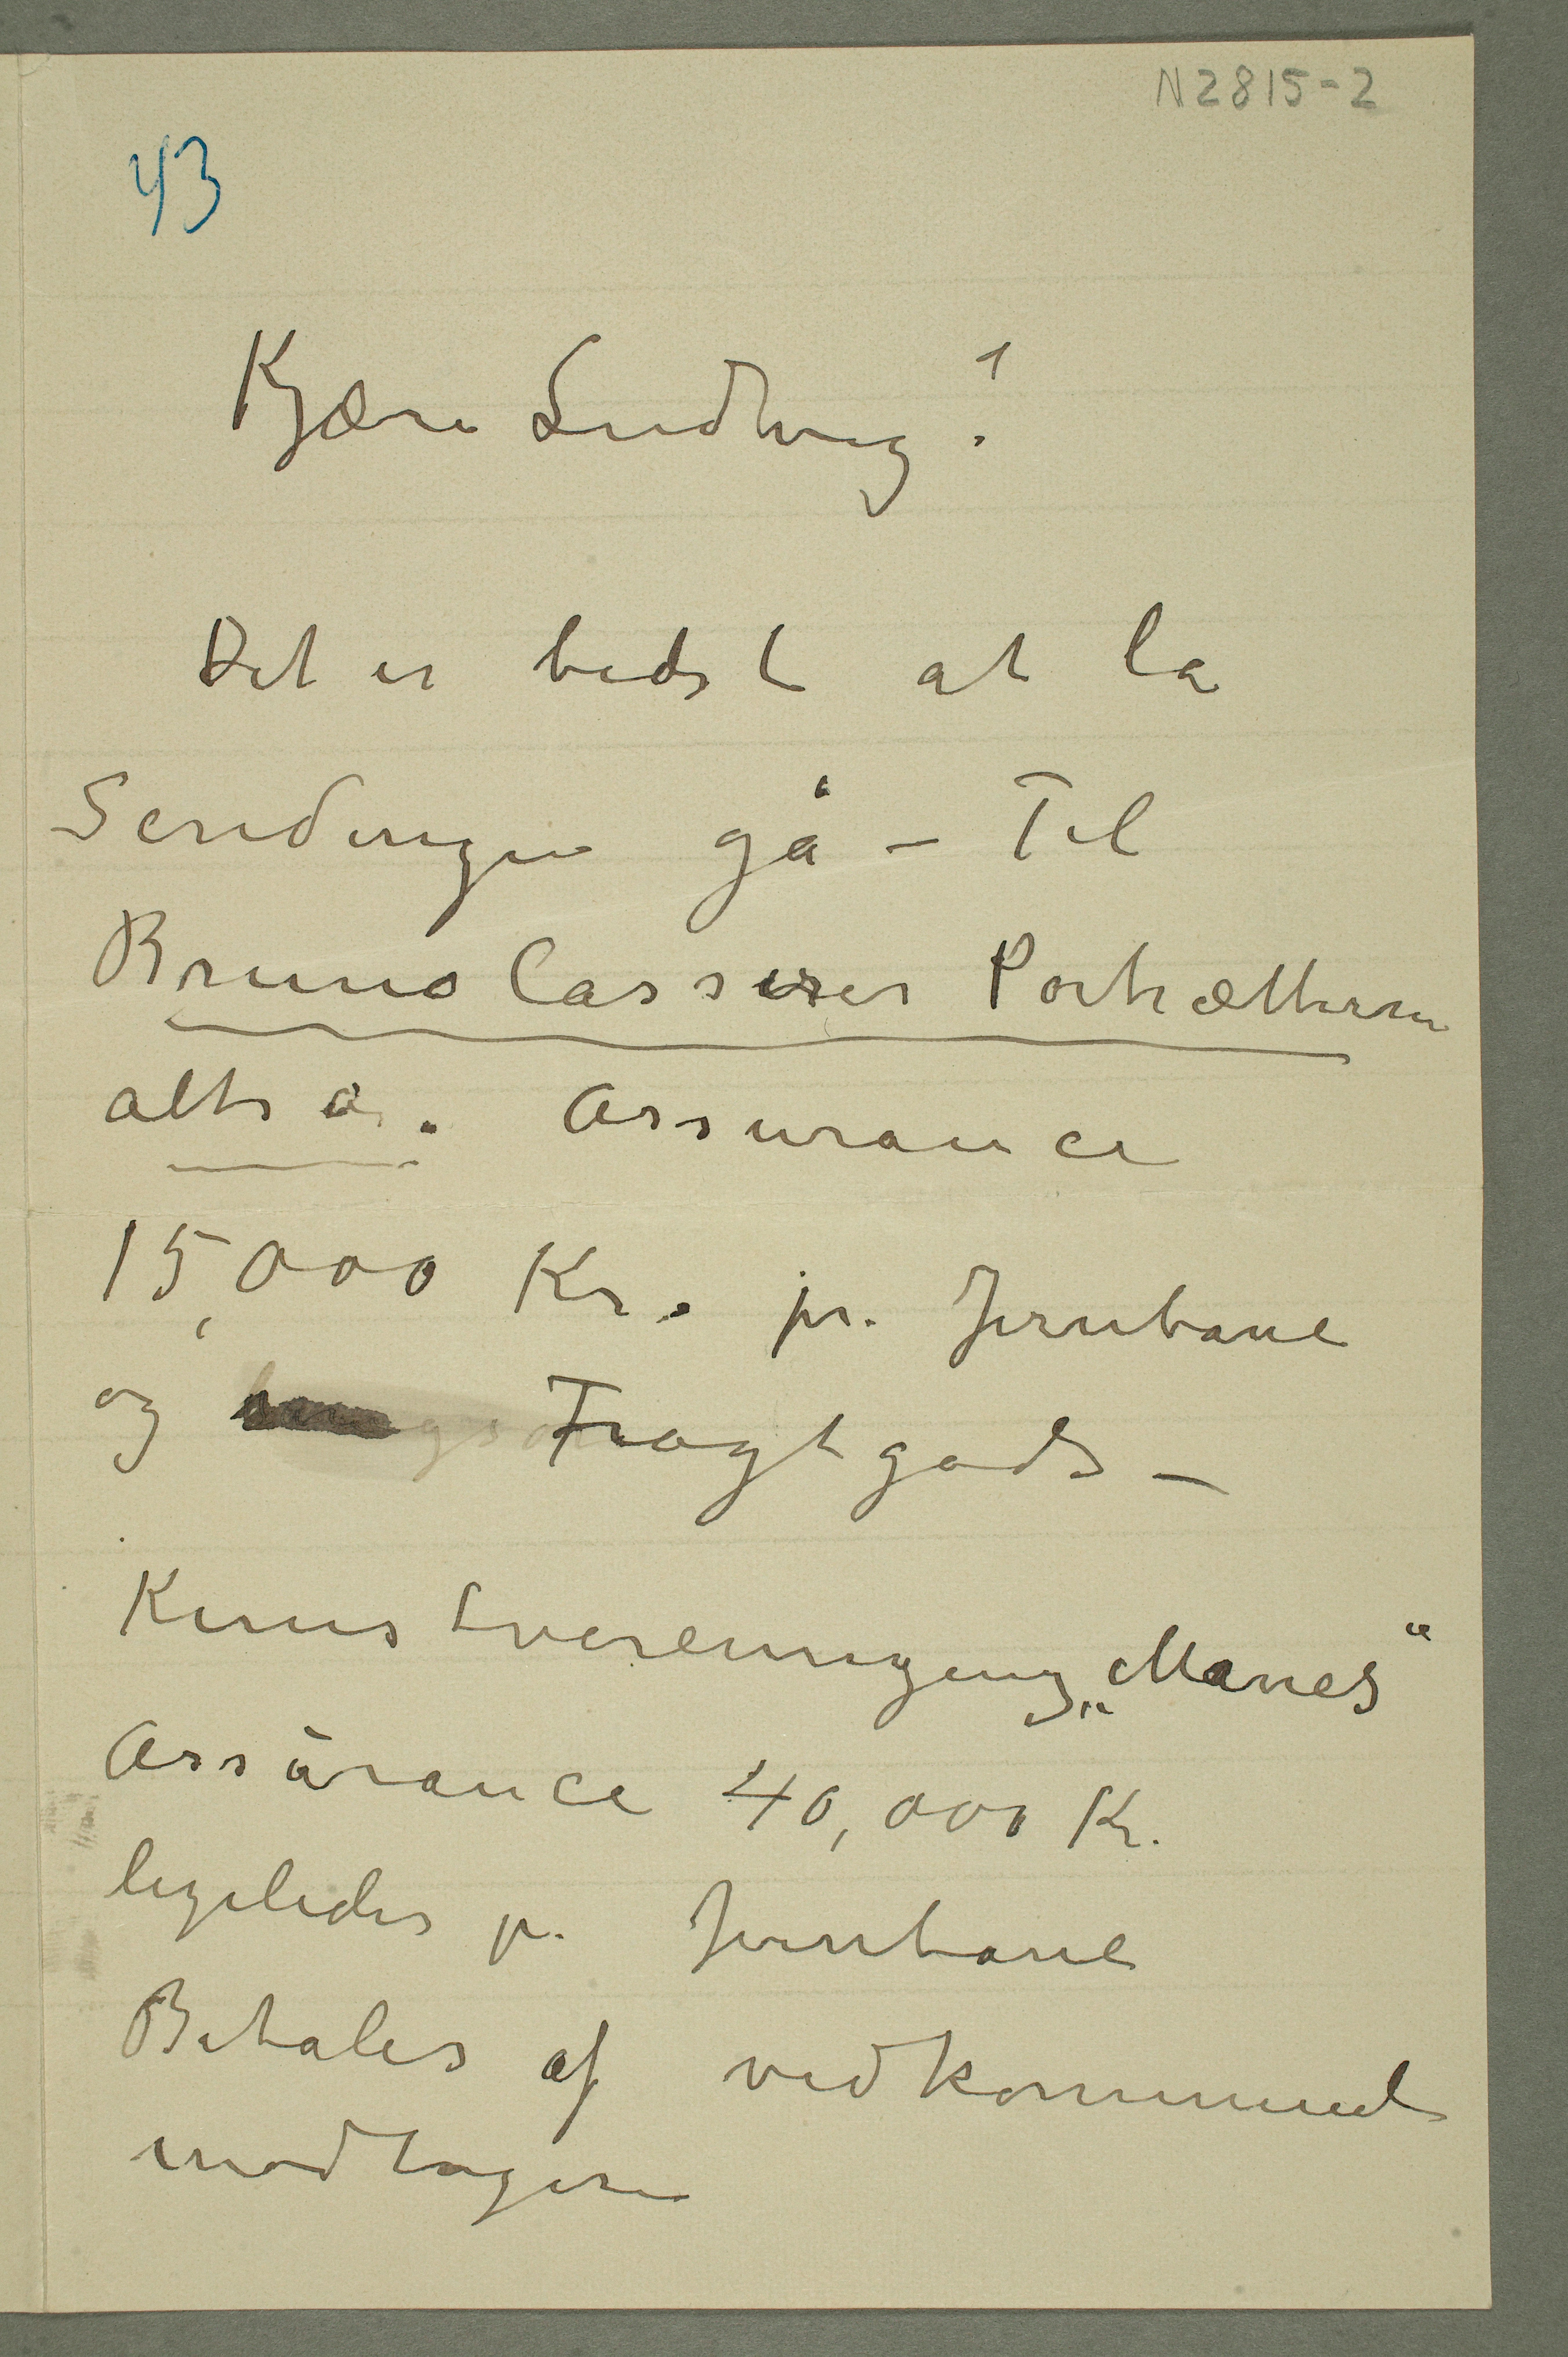 N 2815-2
43
Kjære Ludvig!
Det er bedst at la
Sendingen gå – Til
Bruno Cassirer Portrætterne
altså. Assurance
15,000 Kr. pr. Jernbane
og Fragtgods –
Kunstvereinigung „Manes“
Assurance 40,000 Kr.
ligeledes pr. Jernbane
Betales af vedkommende
modtagere